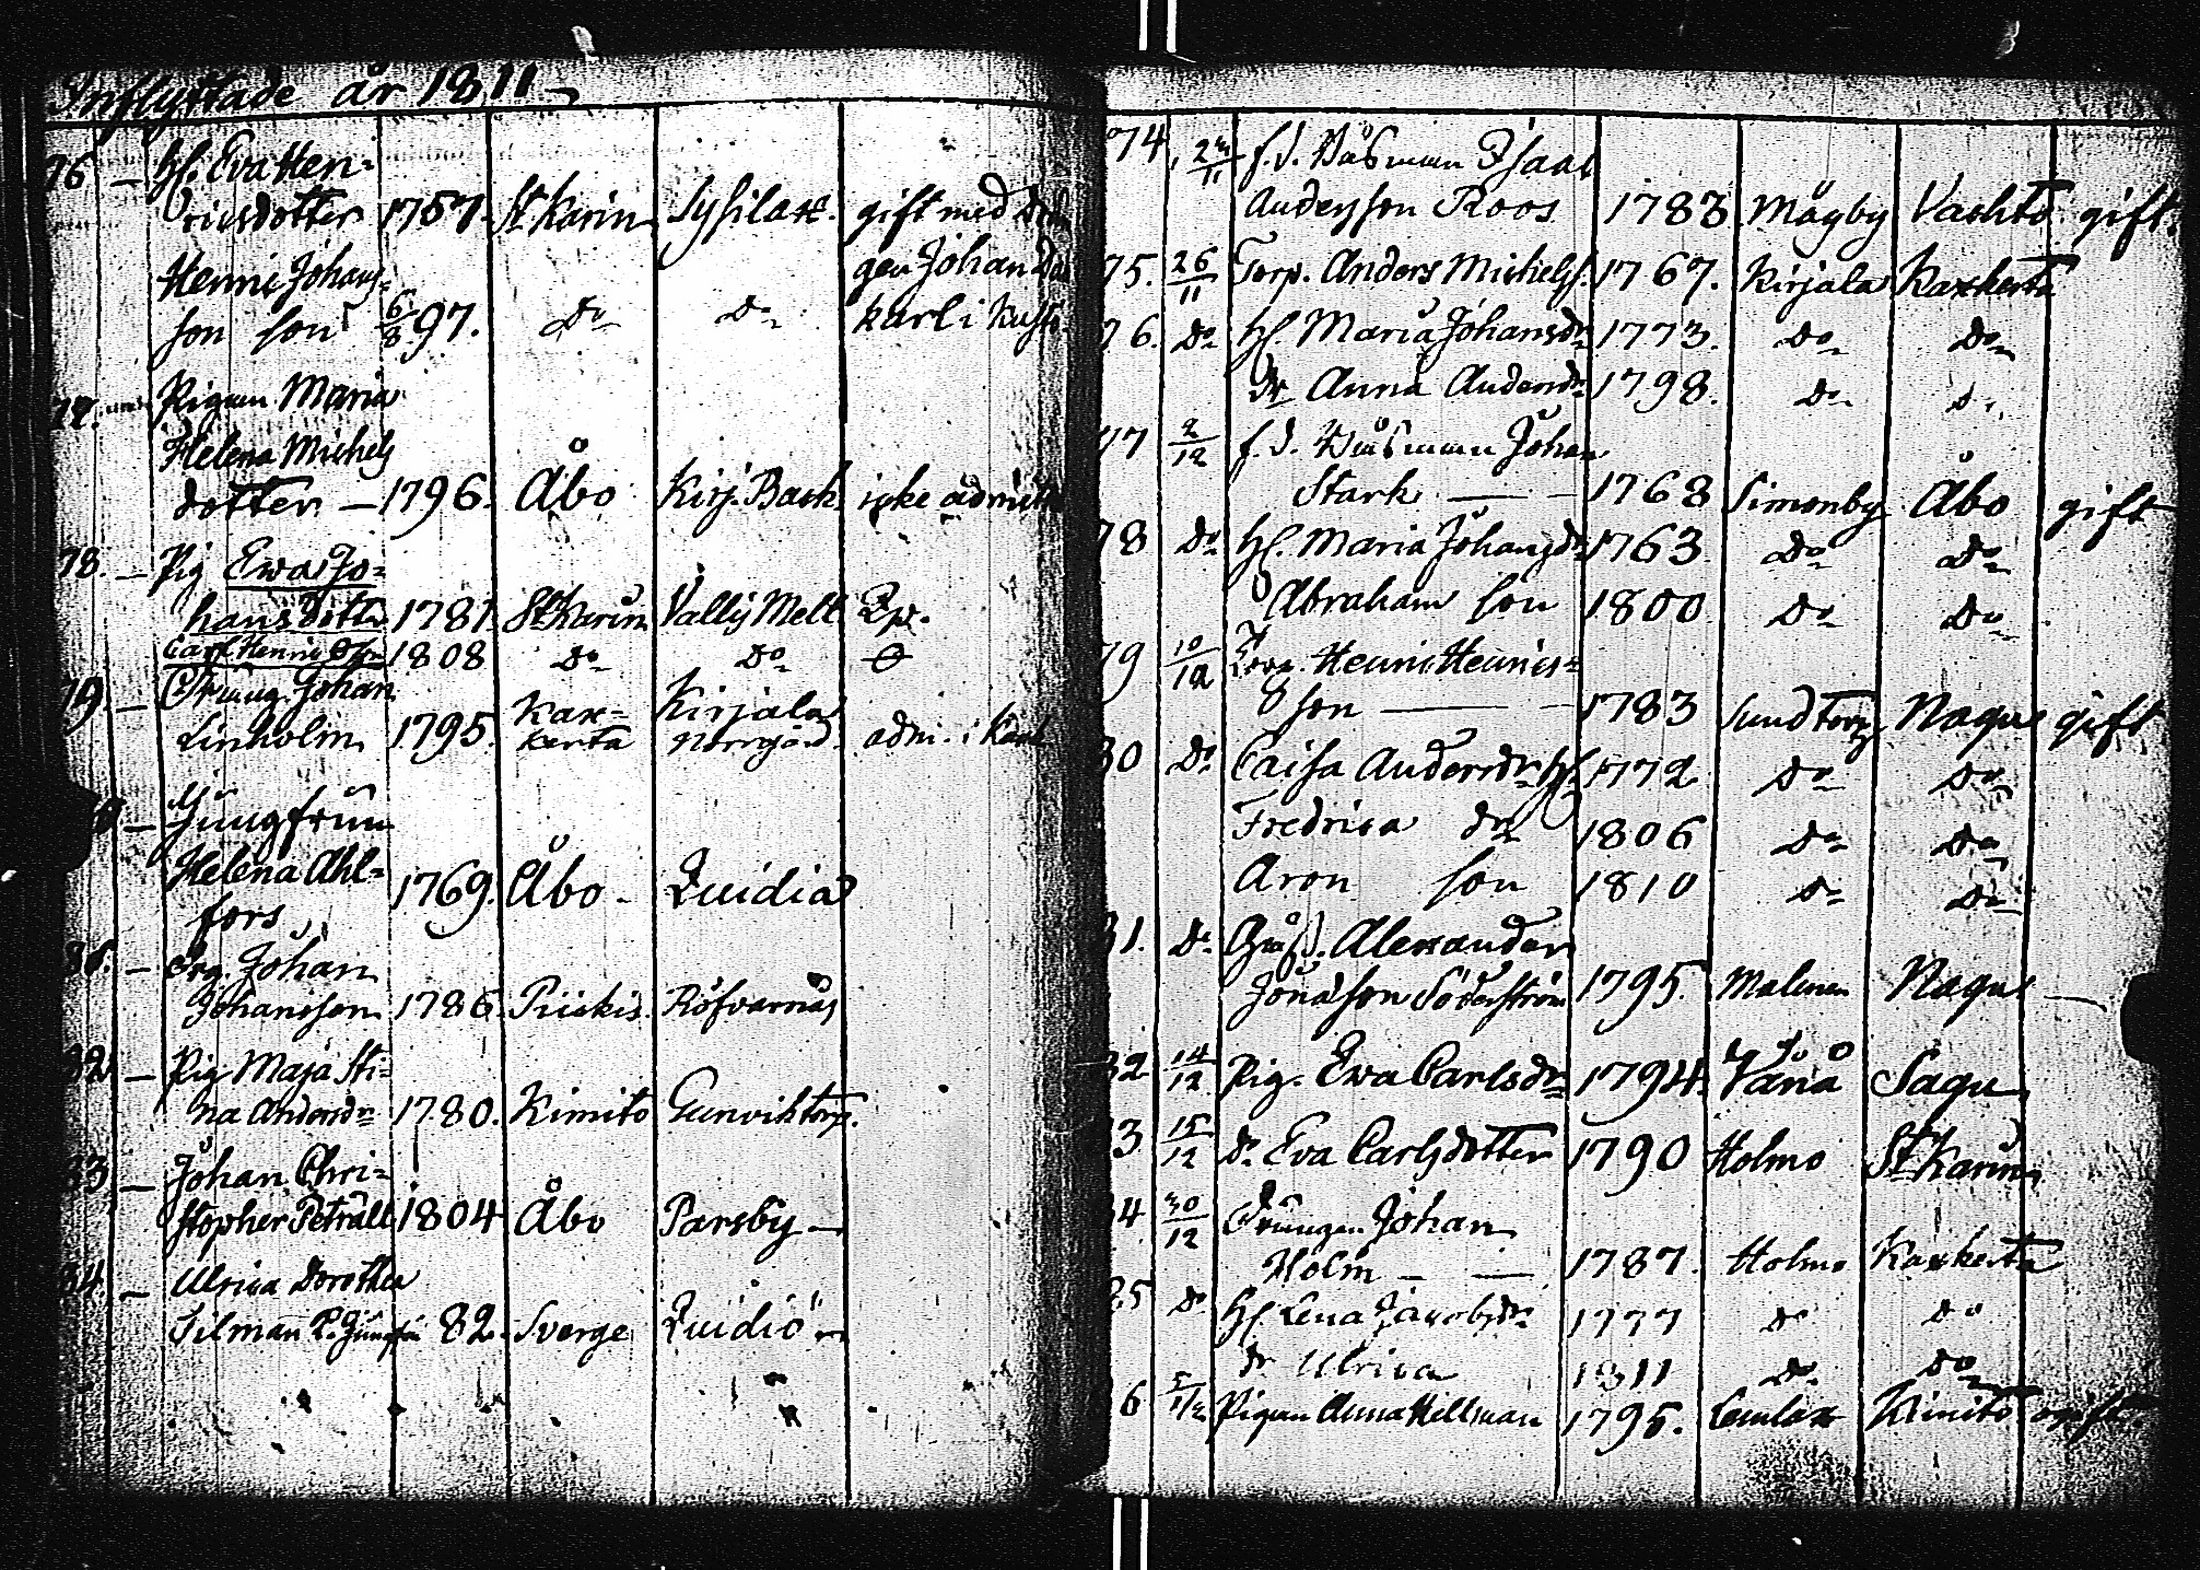 Inflyttade år 1811
76 — H. Eva Hen-
ricsdotter 1757. St Karin Sysilax. gift med
Henric Johans-
son son 6/8 97. Do Do
gen Johan
karl i
77. Pigan Maria
Helena Michels
dotter — 1796. Åbo Kirj. Back icke
78. — Pig Ewa Jo-
hansdottr 1781. St Karins Vallis Mell
Carl Henric 1808 Do Do
79. — Johan
Linholm 1795. Kax-
kerta Kirjala
Norrgård adm. i
— Jungfrun
Helena Ahl-
fors 1769. Åbo — Qvidia
— Drg. Johan
Johansson 1786. Piikis. Röfvarnäs
32 — Pig Maja Sti-
na Andersdr 1780. Kimito Gunviktorp.
33 — Johan Chri-
stopher Peträll 1804 Åbo Parsby —
34. — Ulrica Dorothea
Silman 82. Sverge Qvidiö
74 f.d. Båsman Isaac
Andersson Roos 1783 Mågby Vachto gift.
75. 26/11 Torp. Anders Michelss. 1767. Kirjala Kaxkerta
76. Do H. Maria Johansdr 1773. Do Do
dr Anna Andersdr 1798. Do Do
77 2/12 f.d. Båsman Johan
Stark — 1768 Simonby Åbo gift
78 Do H. Maria Johansdr 1763. Do Do
Abraham son 1800 Do Do
79 10/12 Torp. Henric Henrics-
son — 1783 Sundtorp Nagu gift
30 Do Caisa Andersdr H. 1772 Do Do
Fredrica dr 1806 Do Do
Aron son 1810 Do Do
31. Do Alexander
Jonasson Söderström 1795. Malmen Nagu
32 14/12 Pig. Ewa Carlsdr 1794. Vånå Sagu
33 15/12 Do Eva Carlsdotter 1790 Holmo St Karins
34 30/12 Drängen Johan
Holm — 1787. Holmo Kaxkerta
35 Do H. Lena Jacobsdr 1777 Do Do
dr Ulrica 1811 Do Do
6 Pigan Anna Hellman 1795. Lemlax Kimito gift